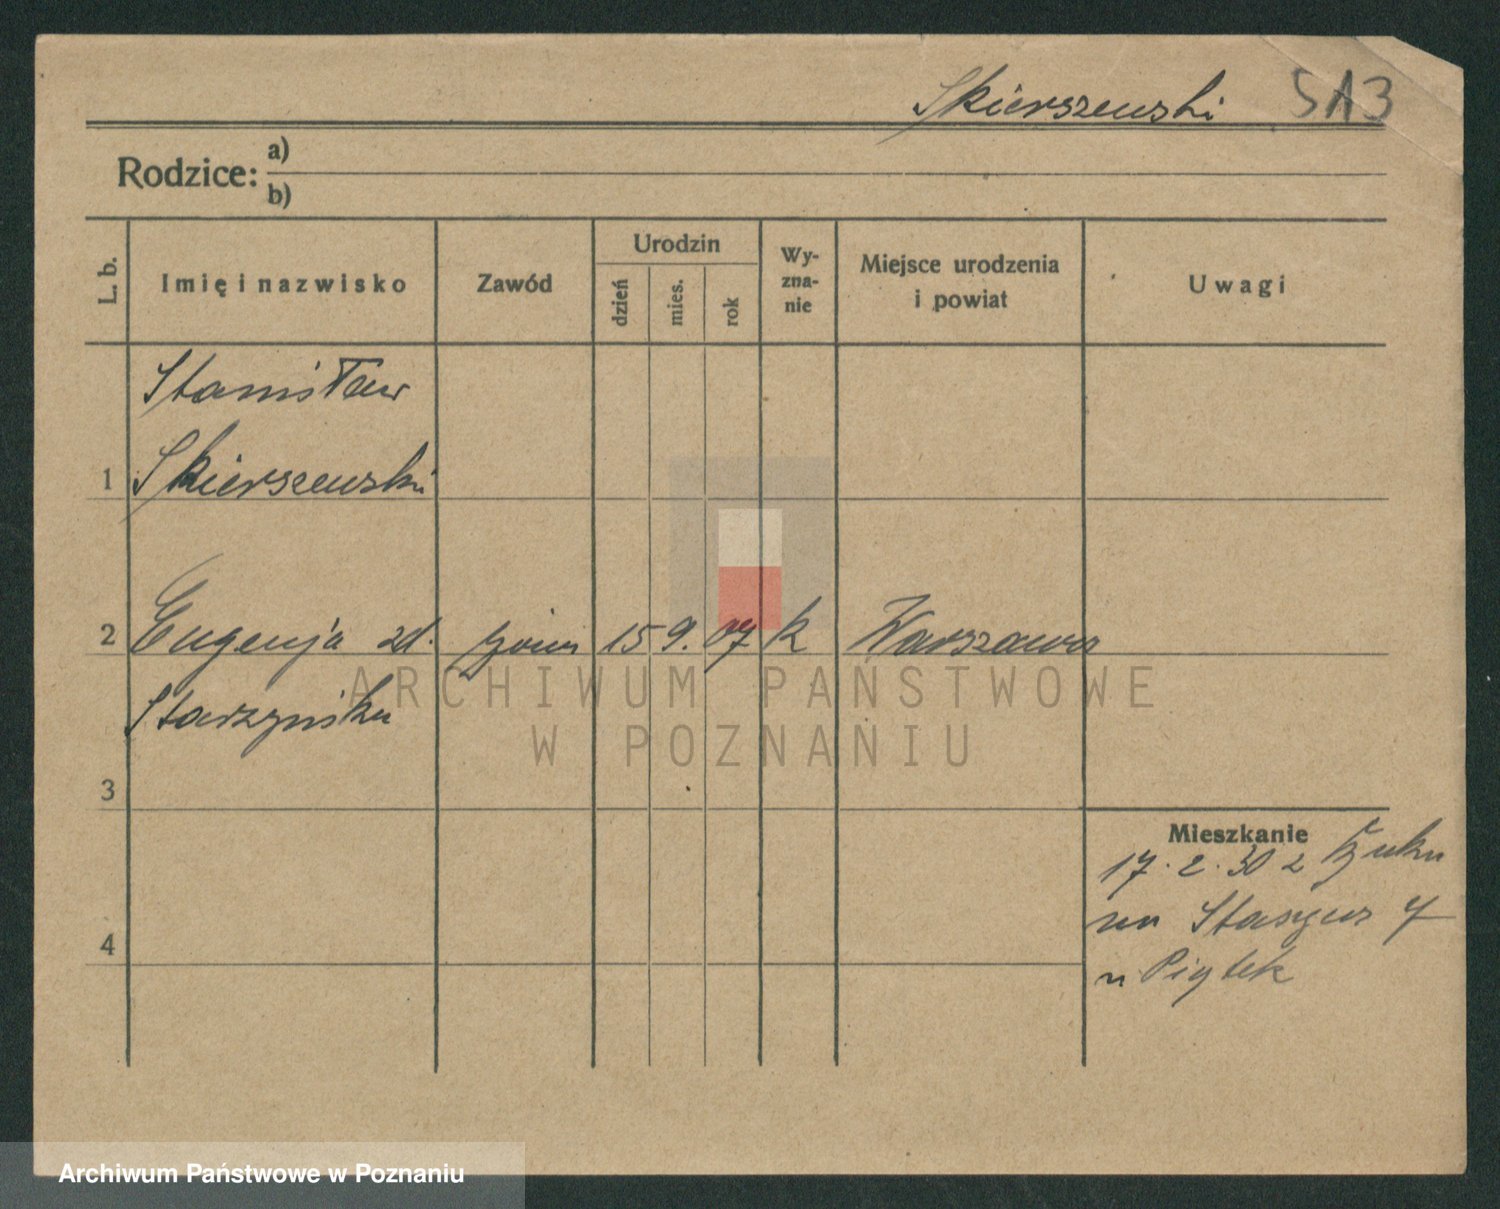 Skierszewski SA3
Rodzice: a)
b)
L. b. Imię i nazwisko Zawód Urodzin dzień mies. rok Wy-zna-nie Miejsce urodzenia i powiat Uwagi
Stanisław
1 Skierszewski
2 Eugenja zd. żona 15 9. 07 k Warszawa
Starzyńska
3
Mieszkanie
17. 2. 30 z Buku
na
4
u Piątek
ARCHIWUM PAŃSTWOWE
W POZNANIU
Archiwum Państwowe w Poznaniu